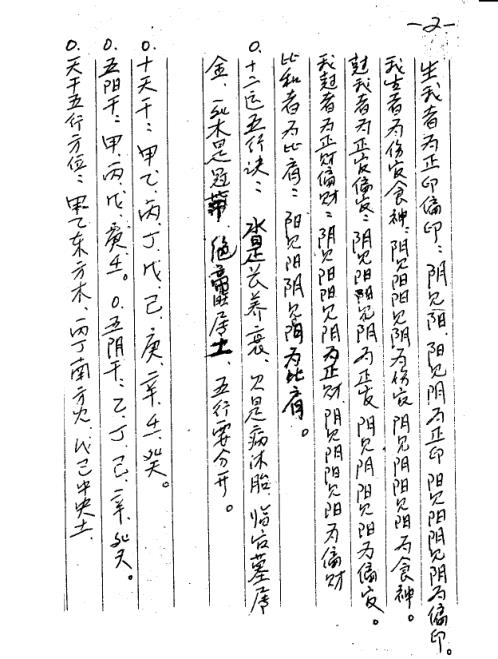 -2-
生我者为正印偏印：阴见阳、阳见阴为正印 阳见阳阴见阴为偏印。
我生者为伤官食神：阴见阳阳见阴为伤官 阴见阴阳见阳为食神。
尅我者为正官偏官：阴见阳阳见阴为正官 阴见阴阳见阳为偏官。
我尅者为正财偏财：阴见阳阳见阴为正财 阴见阴阳见阳为偏财
比和者为比肩：阳见阳阴见阴为比肩。
0.十二运五行诀：水是长养衰、火是病沐胎、临官墓库
金、 木是冠带、绝 库土、五行要分开。
0.十天干：甲乙、丙、丁、戊、己、庚、辛、壬、癸。
0.五阳干：甲、丙、戊、庚、壬。0.五阴干：乙、丁、己、辛、癸。
0.天干五行方位：甲乙东方木、丙丁南方火、戊己中央土、